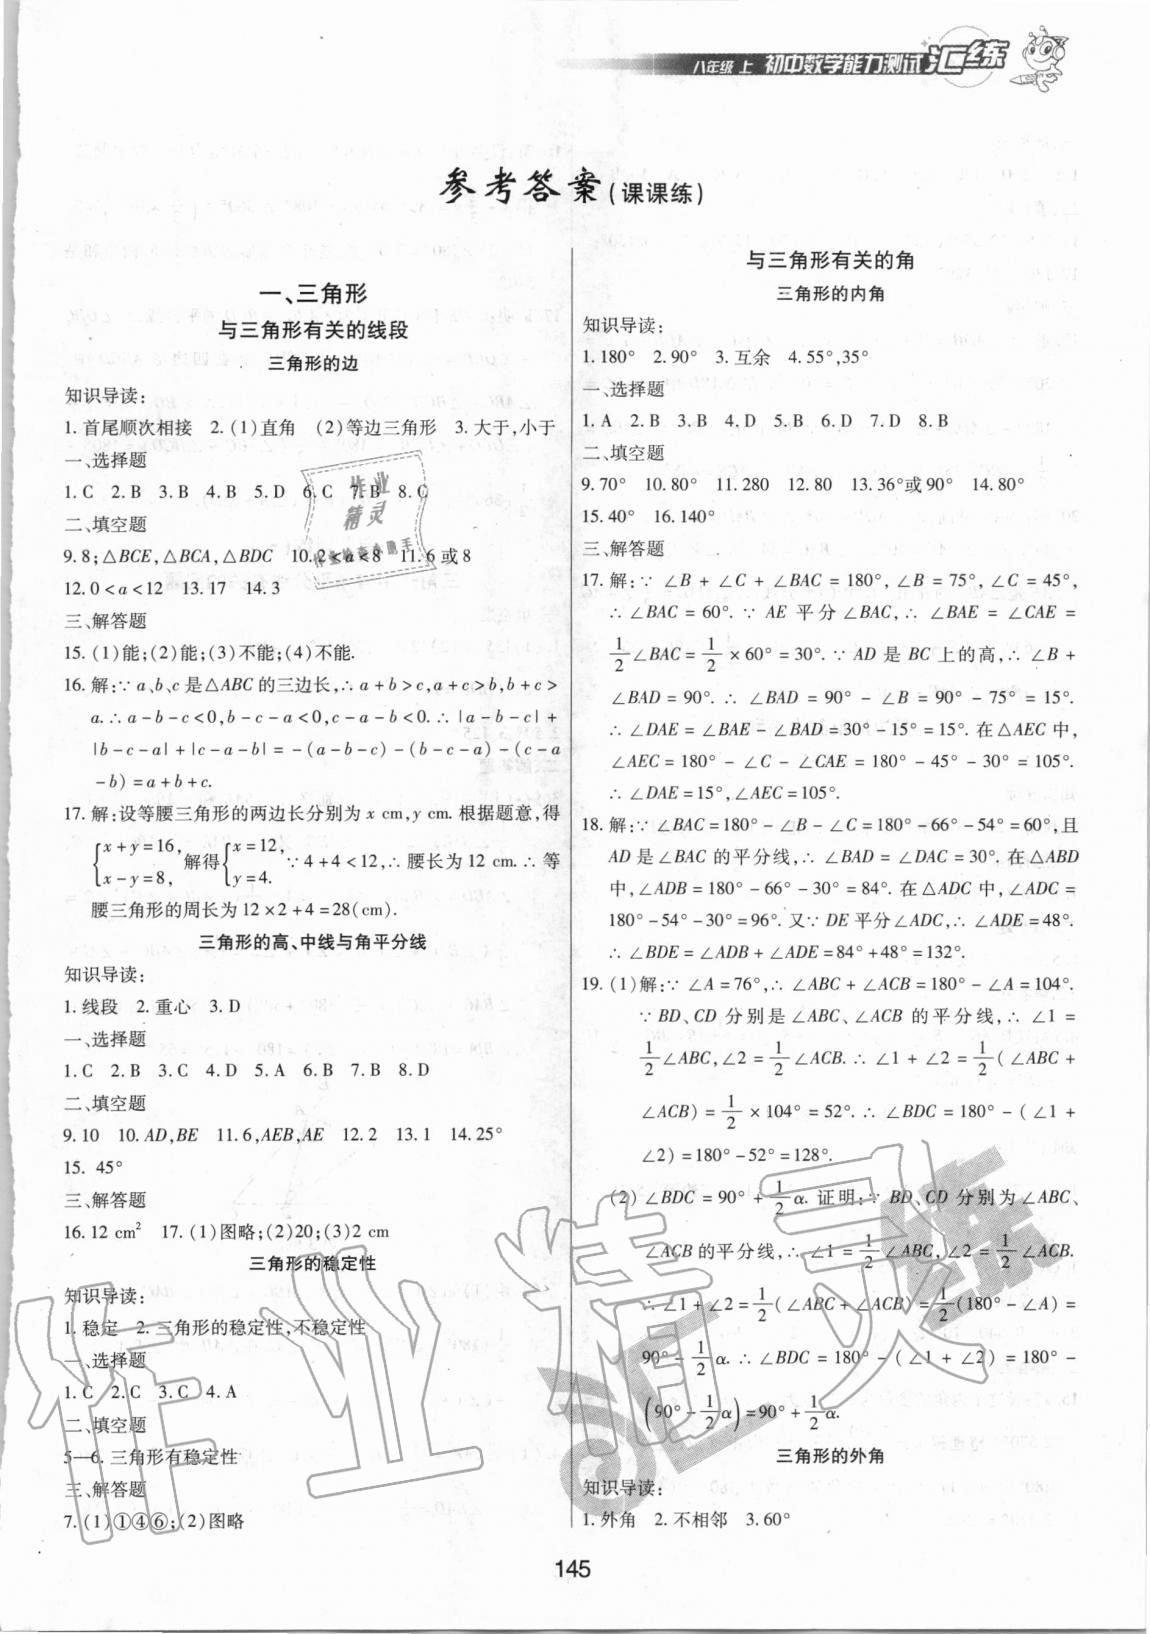 八年级 上 初中数学能力测试汇练
参考答案(课课练)
一、三角形
与三角形有关的线段
三角形的边
知识导读:
1. 首尾顺次相接 2. (1)直角 (2)等边三角形 3. 大于,小于
一、选择题
1. C 2. B 3. B 4. B 5. D 6. C 7. B 8. C
二、填空题
9. 8;△BCE,△BCA,△BDC 10. 2<a<8 11. 6 或 8
12. 0<a<12 13. 17 14. 3
三、解答题
15. (1)能;(2)能;(3)不能;(4)不能.
16. 解:∵a、b、c是△ABC的三边长,∴a+b>c,a+c>b,b+c>
a.∴a-b-c<0,b-c-a<0,c-a-b<0.∴|a-b-c|+
|b-c-a|+|c-a-b|=-(a-b-c)-(b-c-a)-(c-a
-b)=a+b+c.
17. 解:设等腰三角形的两边长分别为 x cm,y cm. 根据题意,得
{x+y=16, x-y=8, 解得{x=12, y=4. ∵4+4<12,∴腰长为 12 cm.∴等
腰三角形的周长为 12×2+4=28(cm).
三角形的高、中线与角平分线
知识导读:
1. 线段 2. 重心 3. D
一、选择题
1. C 2. B 3. C 4. D 5. A 6. B 7. B 8. D
二、填空题
9. 10 10. AD,BE 11. 6,AEB,AE 12. 2 13. 1 14. 25°
15. 45°
三、解答题
16. 12 cm² 17. (1)图略;(2)20;(3)2 cm
三角形的稳定性
知识导读:
1. 稳定 2. 三角形的稳定性,不稳定性
一、选择题
1. C 2. C 3. C 4. A
二、填空题
5—6. 三角形有稳定性
三、解答题
7. (1)①④⑥;(2)图略
与三角形有关的角
三角形的内角
知识导读:
1. 180° 2. 90° 3. 互余 4. 55°,35°
一、选择题
1. A 2. B 3. B 4. D 5. B 6. D 7. D 8. B
二、填空题
9. 70° 10. 80° 11. 280 12. 80 13. 36°或90° 14. 80°
15. 40° 16. 140°
三、解答题
17. 解:∵∠B+∠C+∠BAC=180°,∠B=75°,∠C=45°,
∴∠BAC=60°.∵AE 平分∠BAC,∴∠BAE=∠CAE=
1/2∠BAC=1/2×60°=30°.∵AD 是 BC 上的高,∴∠B+
∠BAD=90°.∴∠BAD=90°-∠B=90°-75°=15°.
∴∠DAE=∠BAE-∠BAD=30°-15°=15°. 在△AEC中,
∠AEC=180°-∠C-∠CAE=180°-45°-30°=105°.
∴∠DAE=15°,∠AEC=105°.
18. 解:∵∠BAC=180°-∠B-∠C=180°-66°-54°=60°,且
AD是∠BAC的平分线,∴∠BAD=∠DAC=30°. 在△ABD
中,∠ADB=180°-66°-30°=84°. 在△ADC中,∠ADC=
180°-54°-30°=96°. 又∵DE平分∠ADC,∴∠ADE=48°.
∴∠BDE=∠ADB+∠ADE=84°+48°=132°.
19. (1)解:∵∠A=76°,∴∠ABC+∠ACB=180°-∠A=104°.
∵BD、CD 分别是∠ABC、∠ACB 的平分线,∴∠1=
1/2∠ABC,∠2=1/2∠ACB.∴∠1+∠2=1/2(∠ABC+
∠ACB)=1/2×104°=52°.∴∠BDC=180°-(∠1+
∠2)=180°-52°=128°.
(2)∠BDC=90°+1/2α. 证明:∵BD、CD 分别为∠ABC、
∠ACB的平分线,∴∠1=1/2∠ABC,∠2=1/2∠ACB.
∴∠1+∠2=1/2(∠ABC+∠ACB)=1/2(180°-∠A)=
90°-1/2α.∴∠BDC=180°-(∠1+∠2)=180°-
(90°-1/2α)=90°+1/2α.
三角形的外角
知识导读:
1. 外角 2. 不相邻 3. 60°
145
作业精灵
作业
精灵